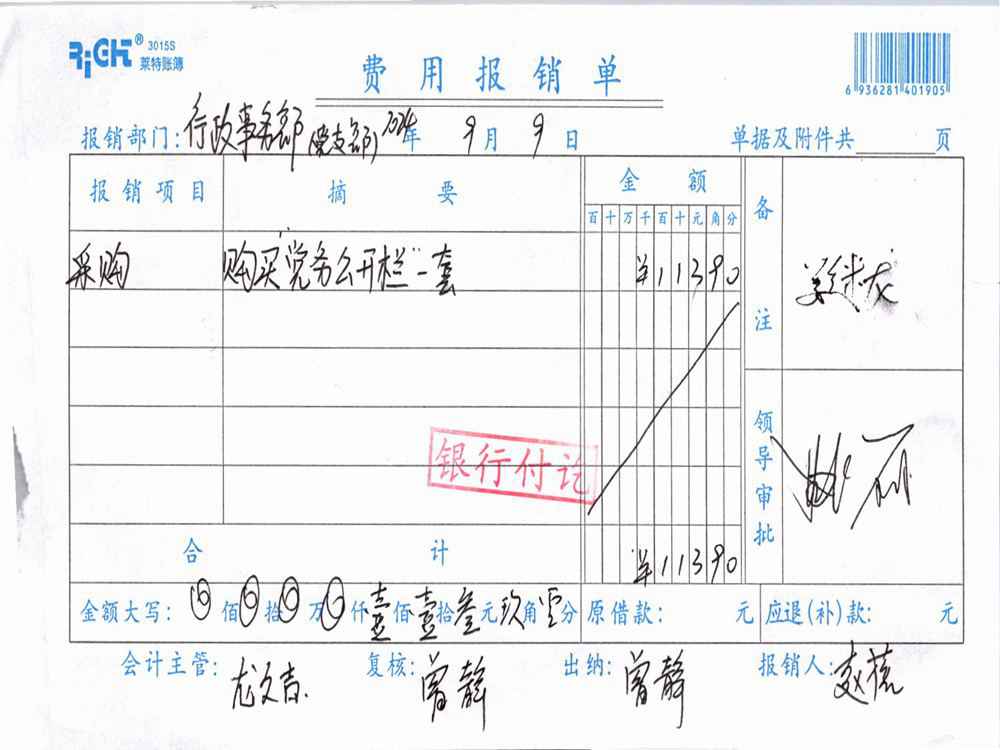 RiGHT® 3015S
莱特账簿
费用报销单
6 936281 401905
报销部门: 行政事务部(党支部) 2024年 9月 9日 单据及附件共 页
报销项目 摘要 金额 备注
百 十 万 千 百 十 元 角 分
采购 购买"党务公开栏"一套 ¥11390
银行付讫
领导审批
合计 ¥11390
金额大写: 佰 拾 万 仟 壹 佰 壹 拾 叁 元 玖 角 零 分 原借款: 元 应退(补)款: 元
会计主管: 尤文吉 复核: 曾静 出纳: 曾静 报销人: 赵